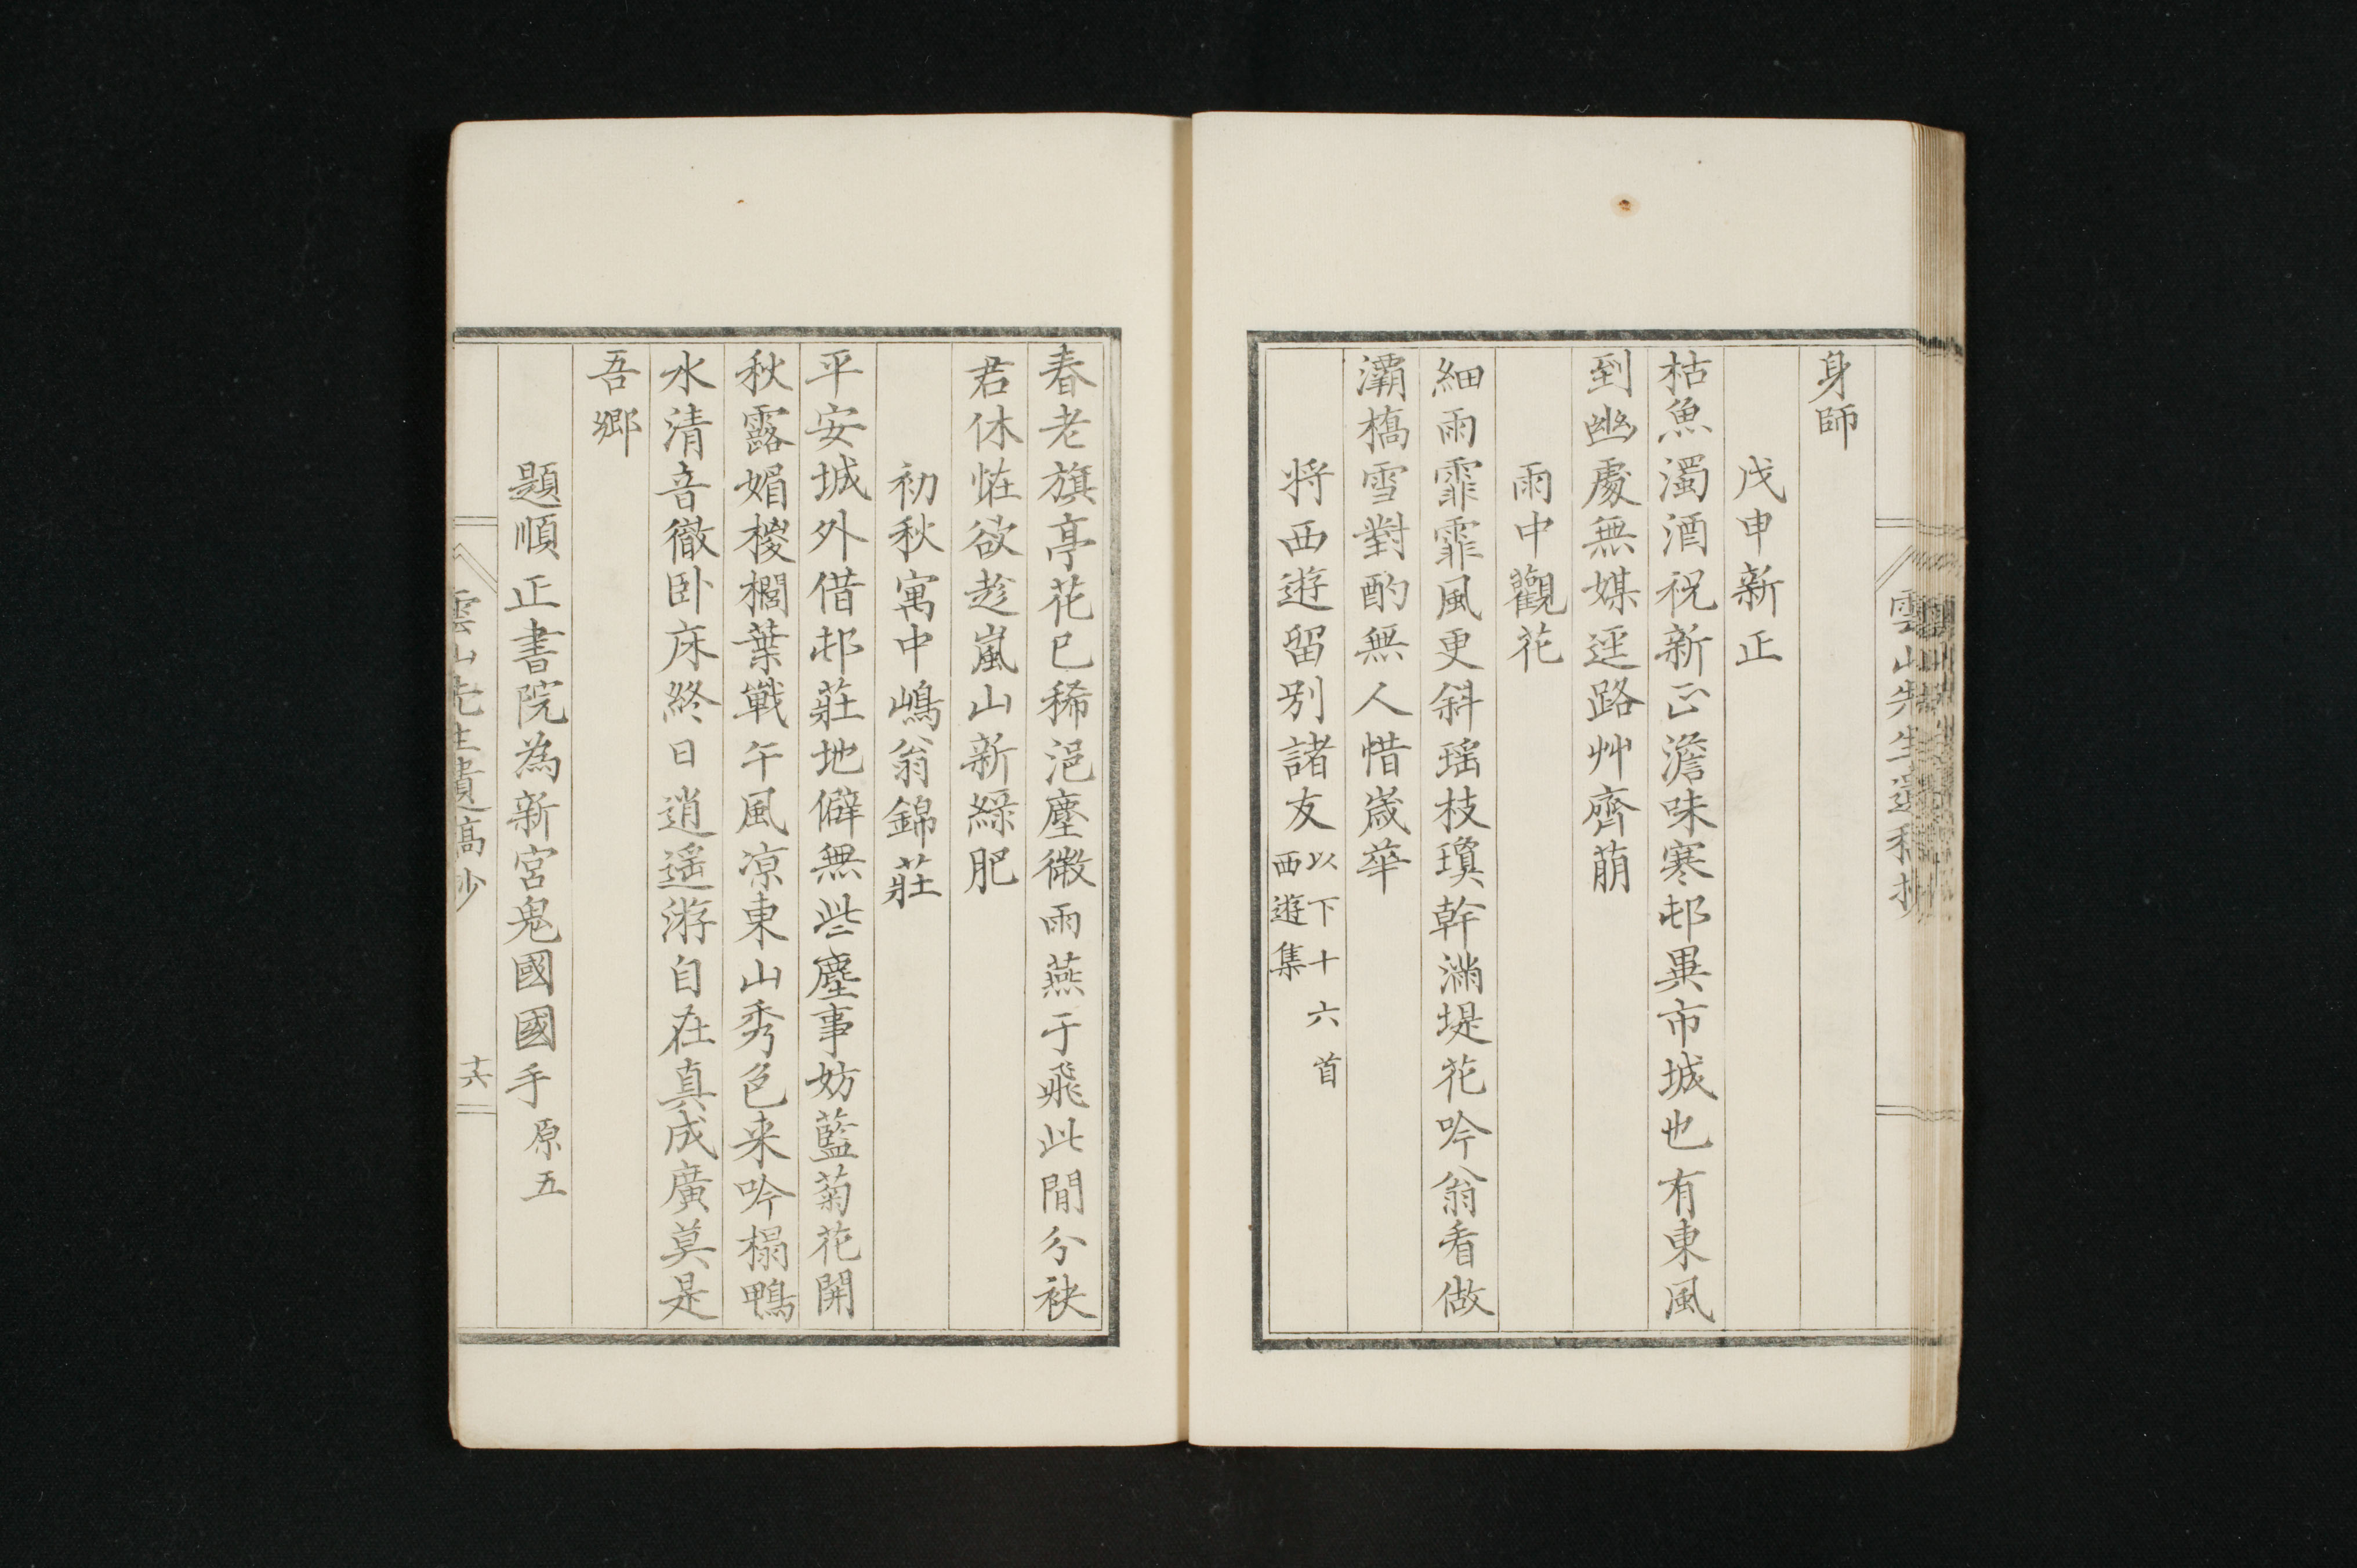 身師
戊申新正
枯魚濁酒祝新正澹味寒邨異市城也有東風
到幽處無媒逕路艸齊萌
雨中觀花
細雨霏霏風更斜瑶枝瓊幹滿堤花吟翁看做
灞橋雪對酌無人惜歲華
将西遊留別諸友以下十六首西遊集
春老旗亭花已稀浥塵微雨燕于飛此間分袂
君休恠欲趁嵐山新綠肥
初秋寓中嶋翁錦莊
平安城外借邨莊地僻無些塵事妨藍菊花開
秋露媚椶櫚葉戰午風凉東山秀色来吟榻鴨
水清音徹卧床終日逍遥游自在真成廣莫是
吾鄉
題順正書院為新宮鬼國國手原五
雲山先生遺稿抄
十六